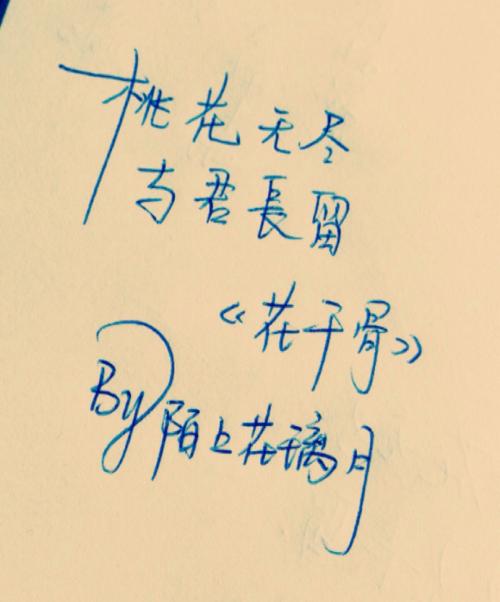 桃花无尽
与君長留
《花千骨》
By陌上花璃月